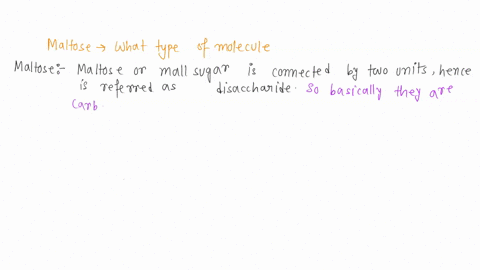 Maltose → What type of molecule
Maltose:- Maltose or mall sugar is connected by two units, hence
is referred as disaccharide. so basically they are
carb